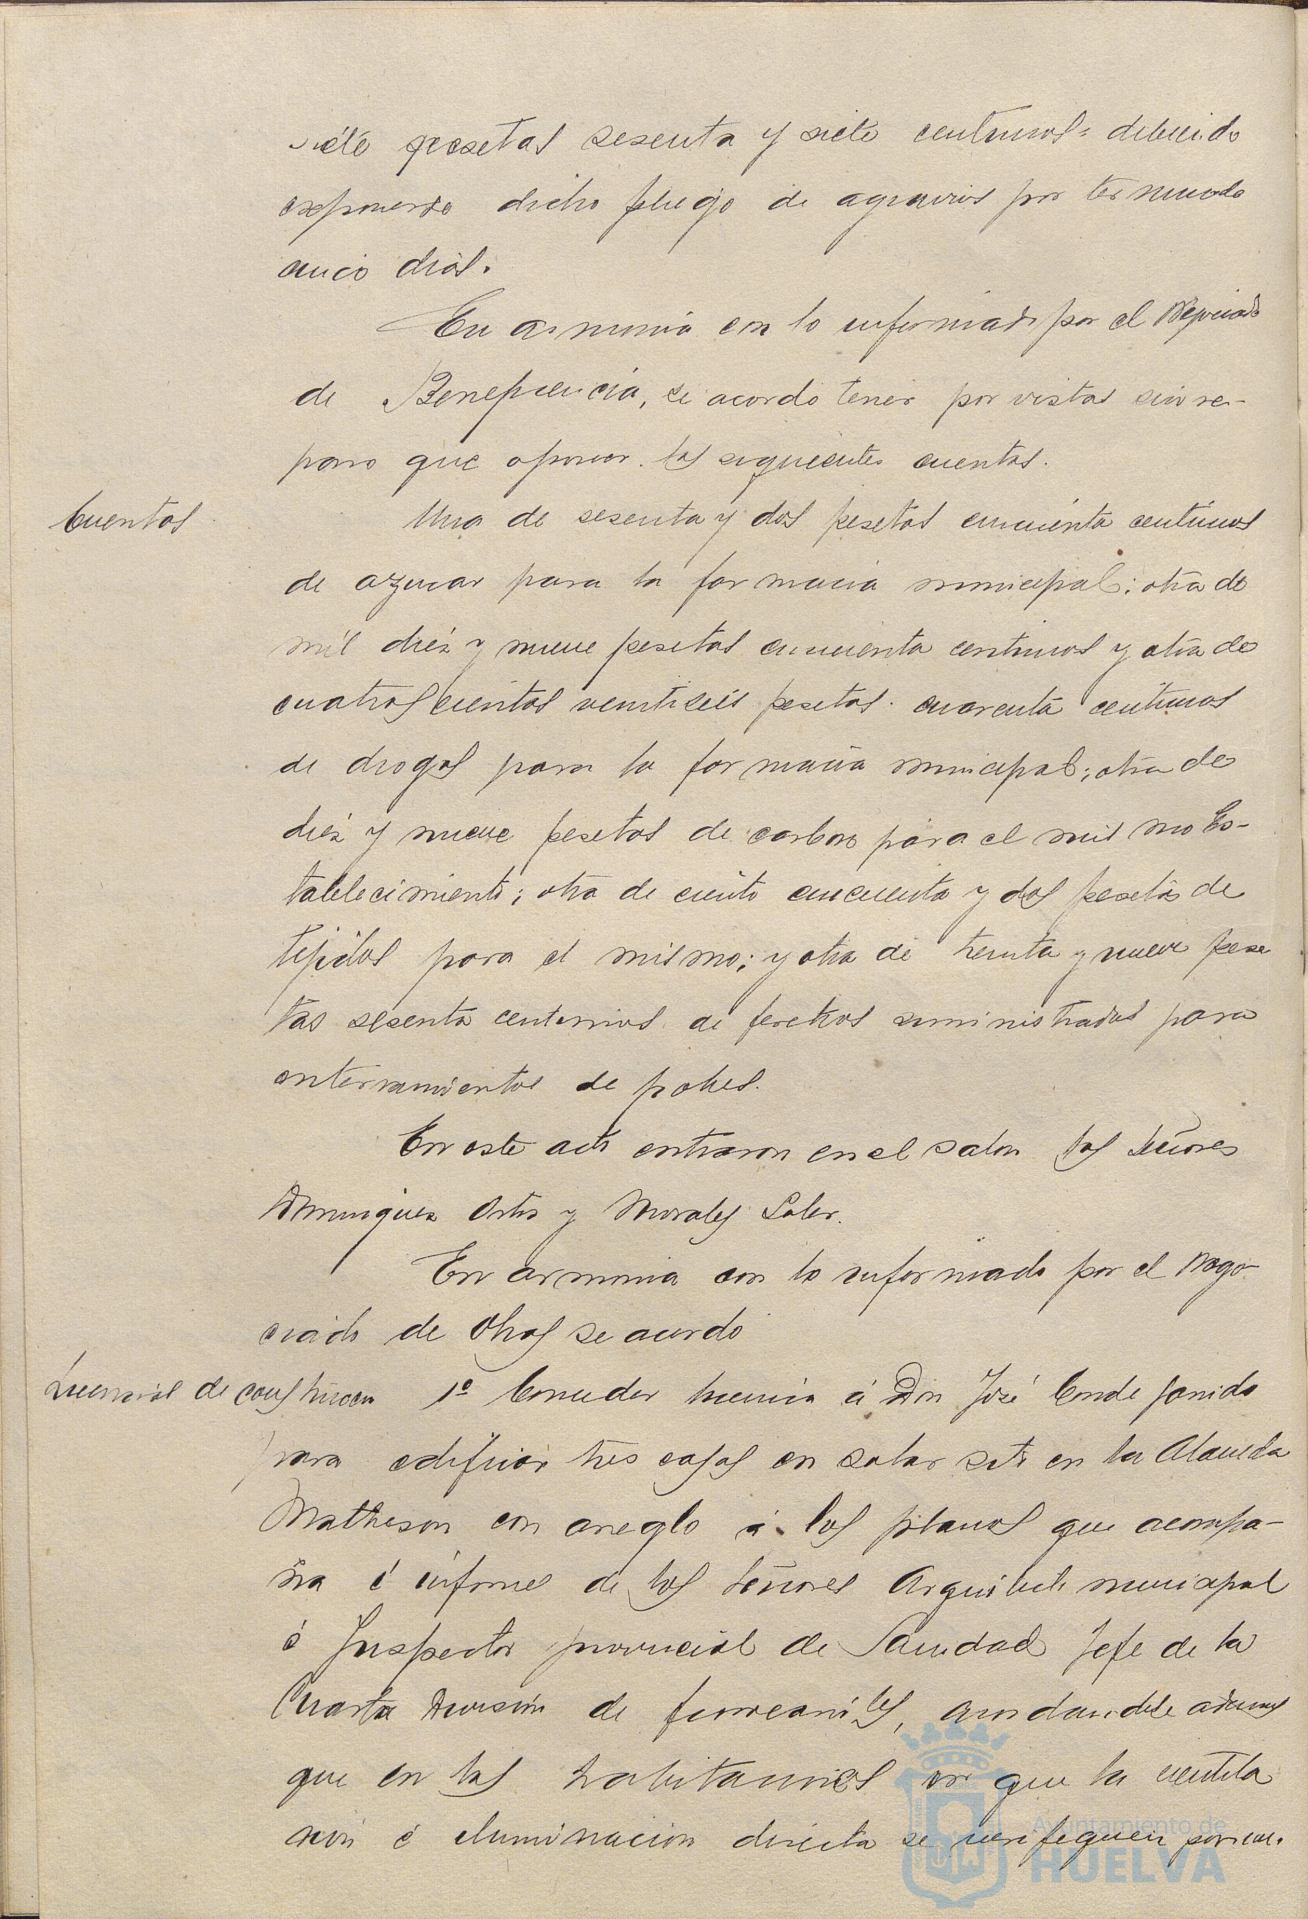 siete pesetas sesenta y siete centimos= debiendo
exponerse dicho pliego de agravios por termino de
cinco dias.
En armonia con lo informado por el Negociado
de Beneficencia, se acordo tener por vistas sin re-
paro que oponer las siguientes cuentas.
Cuentas
Una de sesenta y dos pesetas cincuenta centimos
de azucar para la farmacia municipal; otra de
mil diez y nueve pesetas cincuenta centimos y otra de
cuatroscientas veintiseis pesetas cuarenta centimos
de drogas para la farmacia municipal; otra de
diez y nueve pesetas de carbon para el mismo Es-
tablecimiento; otra de ciento cincuenta y dos pesetas de
tejidos para el mismo; y otra de treinta y nueve pese
tas sesenta centimos de feretros suministrados para
enterramientos de pobres.
En este acto entraron en el salon los Señores
Dominguez Ortiz y Morales Soler.
En armonia con lo informado por el Nego-
ciado de Obras se acordo
Licencias de construccion
1º Conceder licencia á Don José Conde Garrido
para edificar tres casas en solar sito en la Alameda
Matheson con arreglo á los planos que acompa-
ña é informes de los Señores Arquitecto municipal
é Inspector provincial de Sanidad Jefe de la
Cuarta Division de ferrocarriles, acordandose ademas
que en las habitaciones en que la ventila
cion é iluminacion directa se verifiquen por me-
Ayuntamiento de
HUELVA